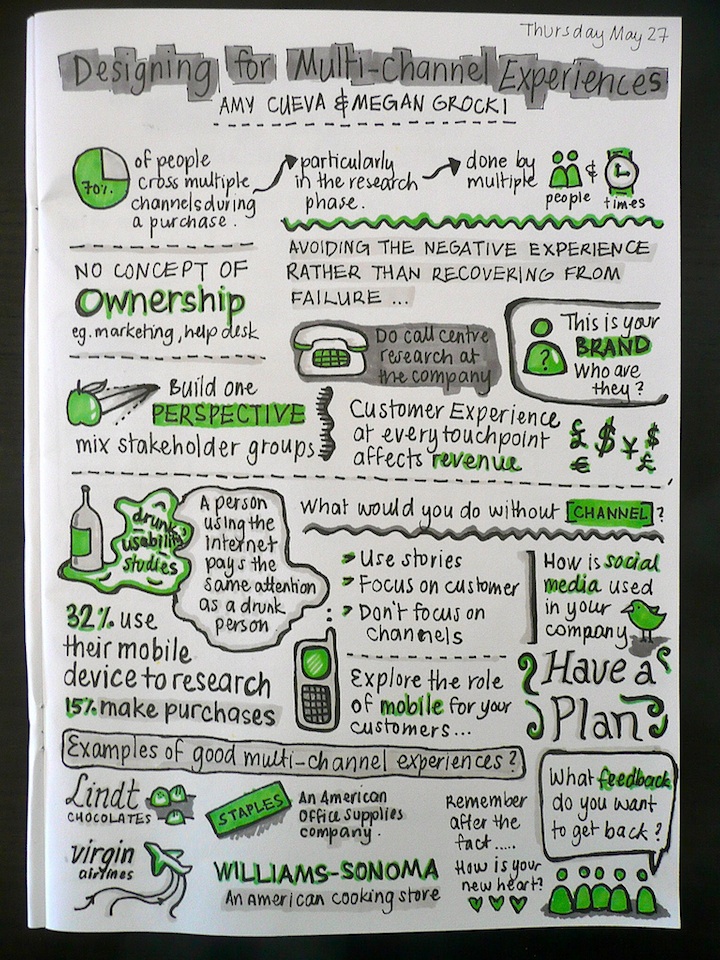 Thursday May 27
Designing for Multi-Channel Experiences
AMY CUEVA & MEGAN GROCKI
70%
of people
cross multiple
channels during
a purchase.
particularly
in the research
phase.
done by
multiple
people
&
times
NO CONCEPT OF
Ownership
eg. marketing, help desk
AVOIDING THE NEGATIVE EXPERIENCE
RATHER THAN RECOVERING FROM
FAILURE ...
Do call centre
research at
the company
?
This is your
BRAND
Who are
they?
Build one
PERSPECTIVE
mix stakeholder groups
Customer Experience
at every touchpoint
affects revenue
£ $ ¥ $
€ £
drunk
usability
studies
A person
using the
internet
pays the
same attention
as a drunk
person
What would you do without CHANNEL?
Use stories
Focus on customer
Don't focus on
channels
How is social
media used
in your
company
32% use
their mobile
device to research
15% make purchases
Explore the role
of mobile for your
customers...
Have a
Plan
Examples of good multi-channel experiences?
Lindt
CHOCOLATES
STAPLES
An American
Office Supplies
company.
Remember
after the
fact.....
How is your
new heart?
What feedback
do you want
to get back?
virgin
airlines
WILLIAMS-SONOMA
An american cooking store